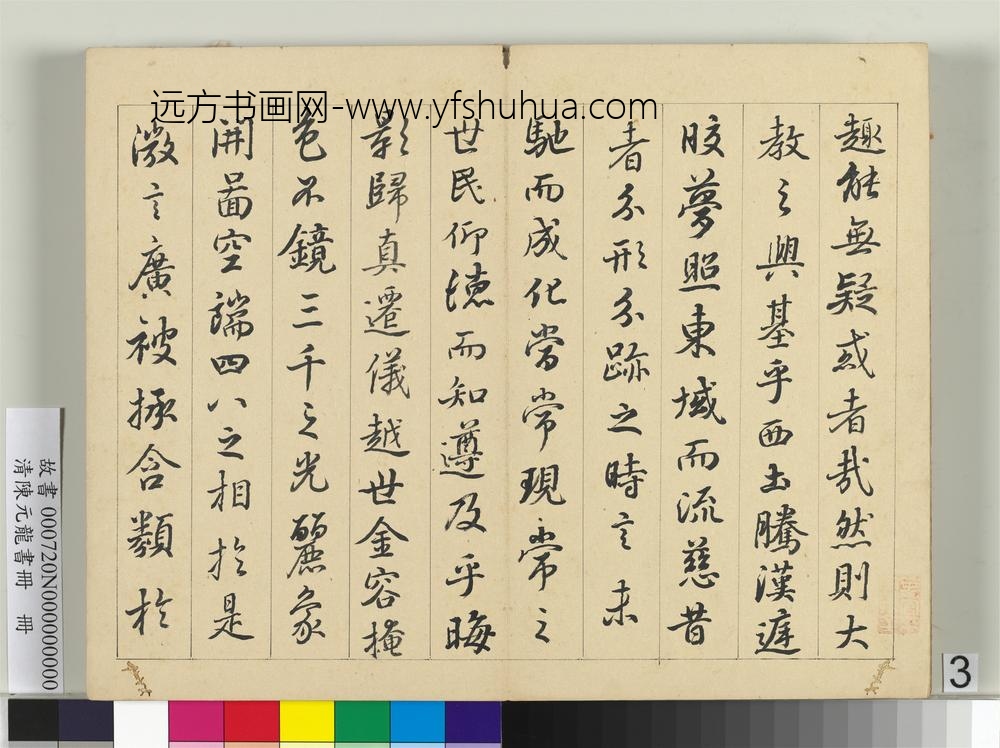 远方书画网-www.yfshuhua.com
趣能無疑惑者哉然則大
教之興基乎西土騰漢庭
皎夢照東域而流慈昔
者分形分跡之時言未
馳而成化當常現常之
世民仰德而知遵及乎晦
影歸真遷儀越世金容掩
色不鏡三千之光麗象
開圖空端四八之相於是
微言廣被拯含類於
故書 000720N000000000
清陳元龍書冊 冊
3